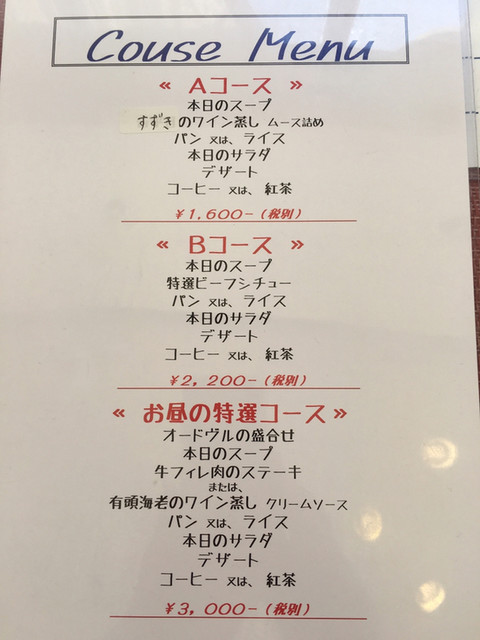 Couse Menu
« Aコース »
本日のスープ
すずきのワイン蒸し ムース詰め
パン 又は、ライス
本日のサラダ
デザート
コーヒー 又は、紅茶
¥1,600-(税別)
« Bコース »
本日のスープ
特選ビーフシチュー
パン 又は、ライス
本日のサラダ
デザート
コーヒー 又は、紅茶
¥2,200-(税別)
« お昼の特選コース »
オードヴルの盛合せ
本日のスープ
牛フィレ肉のステーキ
または、
有頭海老のワイン蒸し クリームソース
パン 又は、ライス
本日のサラダ
デザート
コーヒー 又は、紅茶
¥3,000-(税別)